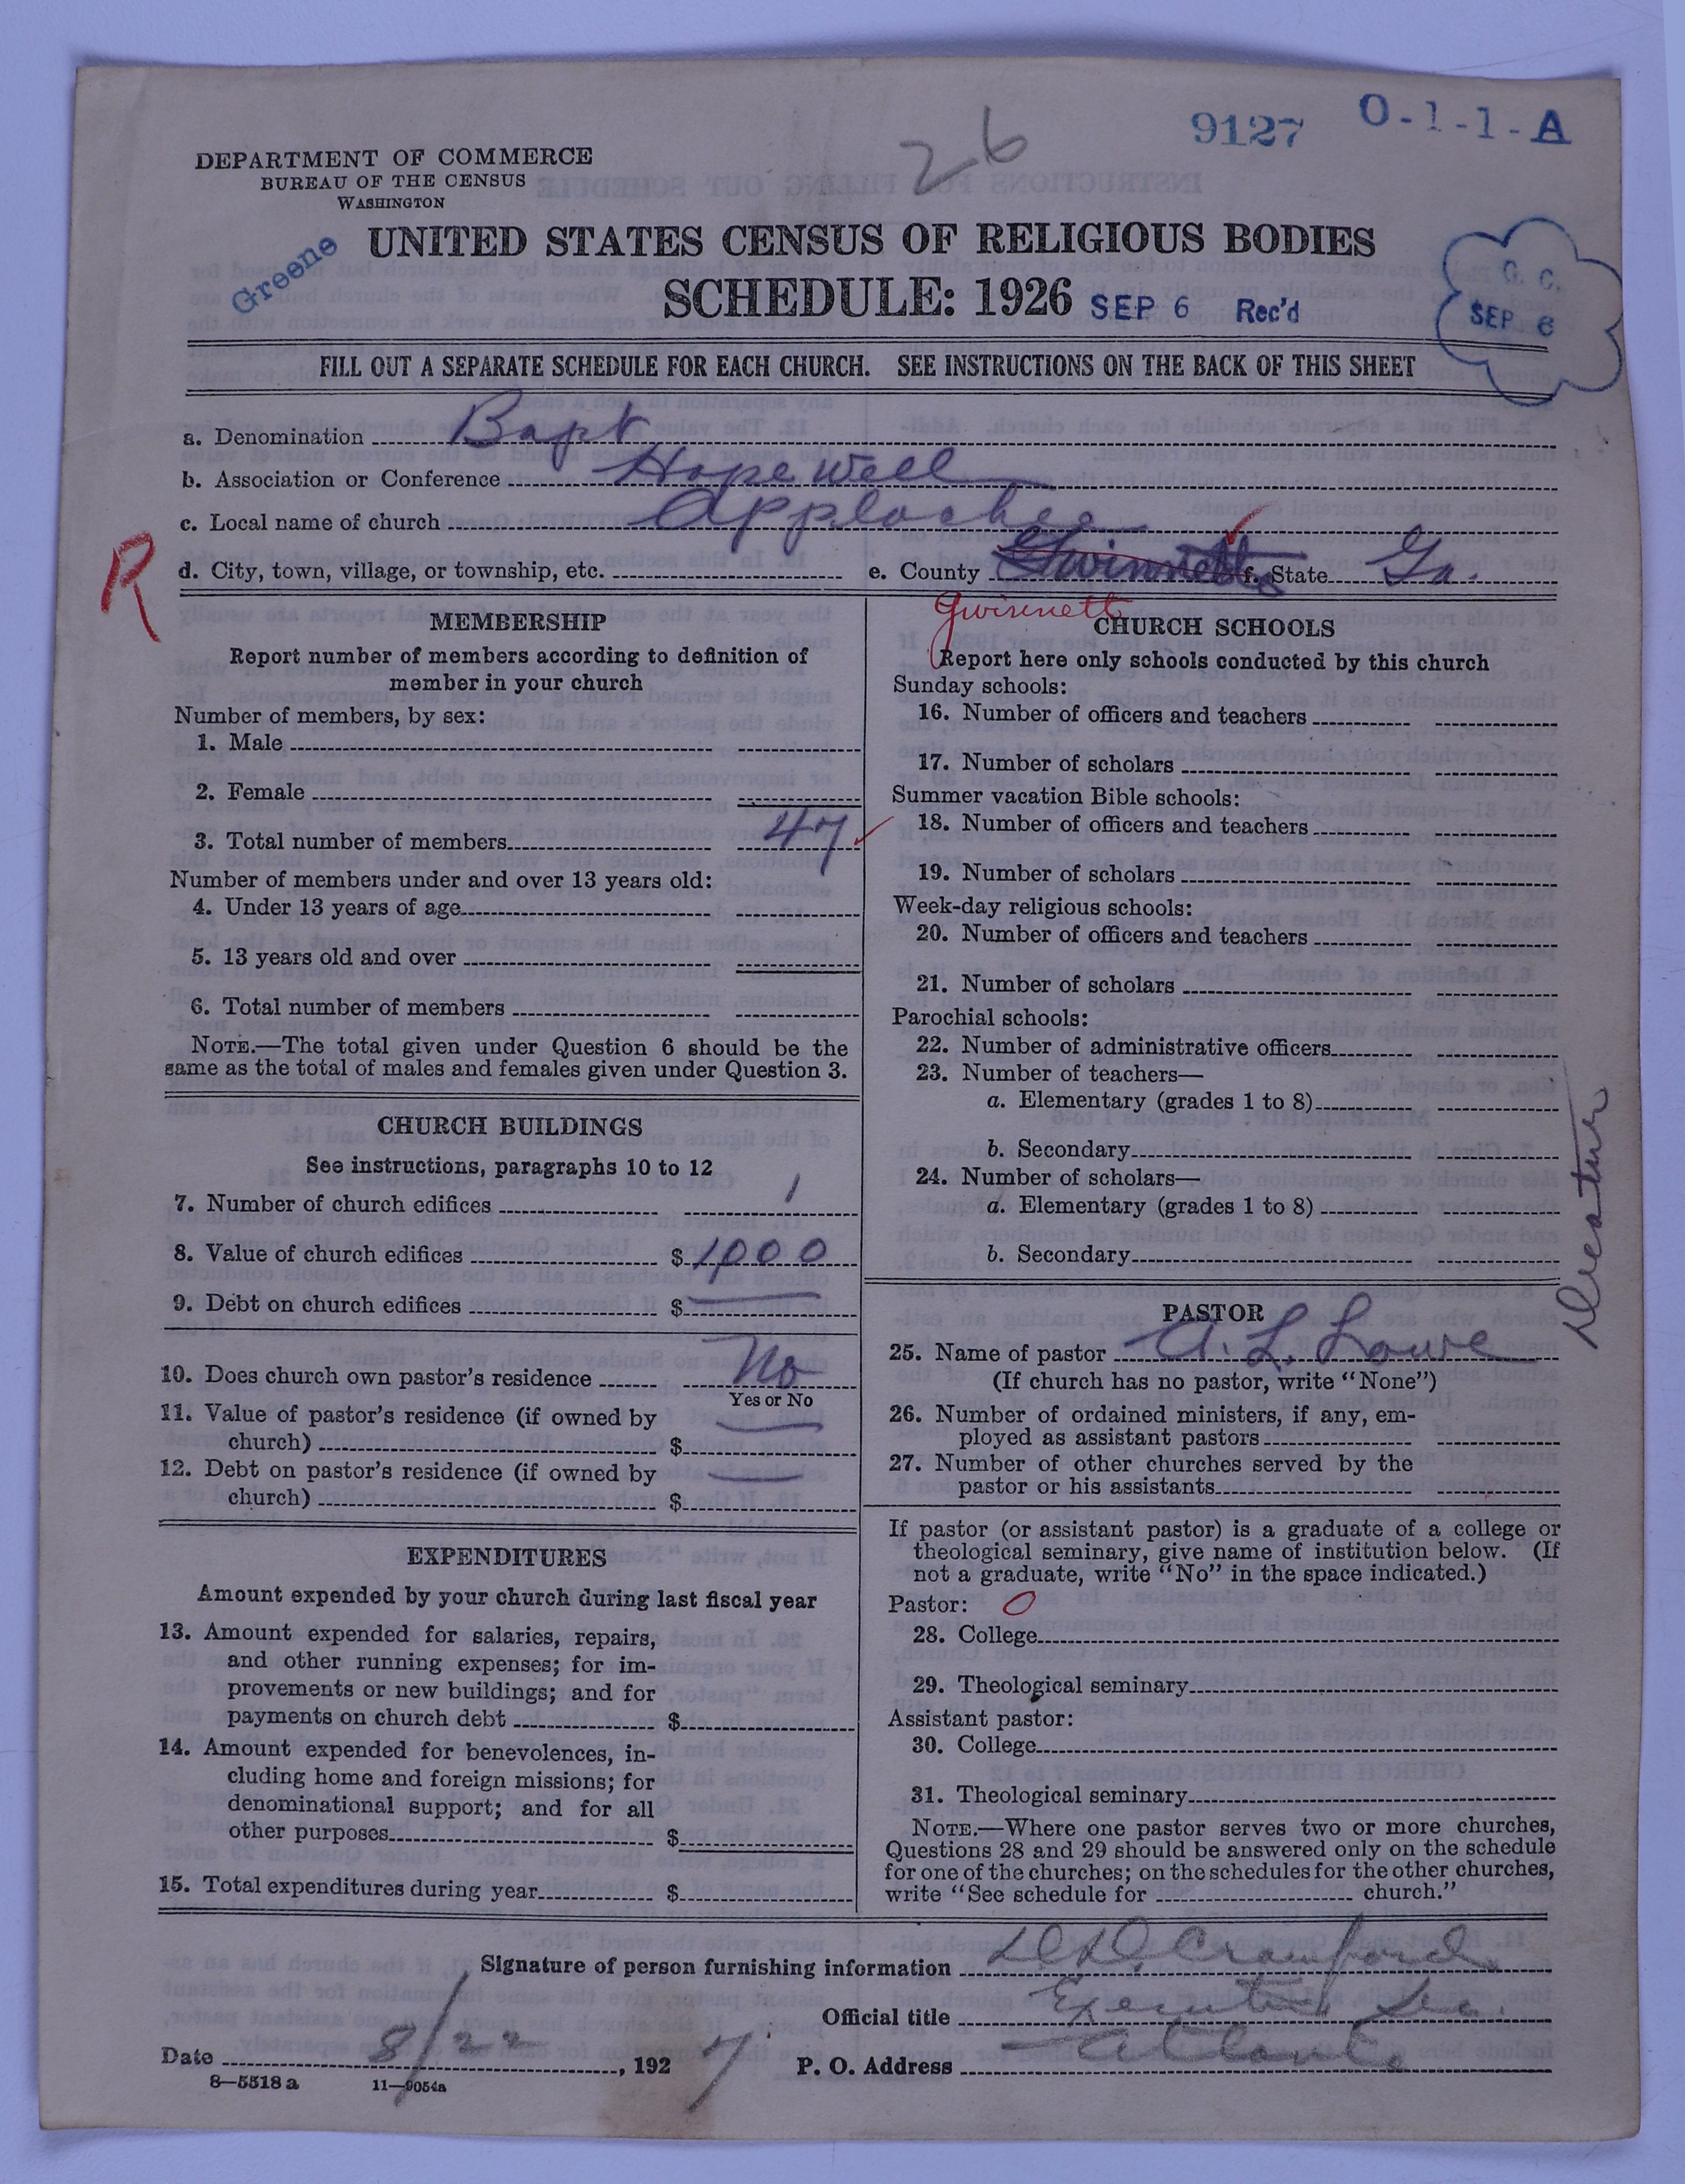 9127 O-1-1-A
26
DEPARTMENT OF COMMERCE
BUREAU OF THE CENSUS
WASHINGTON
Greene
UNITED STATES CENSUS OF RELIGIOUS BODIES
SCHEDULE: 1926
SEP 6 Rec'd
G. C.
SEP 6
FILL OUT A SEPARATE SCHEDULE FOR EACH CHURCH. SEE INSTRUCTIONS ON THE BACK OF THIS SHEET
a. Denomination Bapt
b. Association or Conference Hopewell
c. Local name of church Applachee
R
d. City, town, village, or township, etc. e. County Gwinnett f. State Ga.
Gwinnett
MEMBERSHIP
Report number of members according to definition of
member in your church
Number of members, by sex:
1. Male
2. Female
3. Total number of members 47
Number of members under and over 13 years old:
4. Under 13 years of age
5. 13 years old and over
6. Total number of members
NOTE.—The total given under Question 6 should be the
same as the total of males and females given under Question 3.
CHURCH BUILDINGS
See instructions, paragraphs 10 to 12
7. Number of church edifices 1
8. Value of church edifices $ 1000
9. Debt on church edifices $
10. Does church own pastor's residence No
Yes or No
11. Value of pastor's residence (if owned by
church) $
12. Debt on pastor's residence (if owned by
church) $
EXPENDITURES
Amount expended by your church during last fiscal year
13. Amount expended for salaries, repairs,
and other running expenses; for im-
provements or new buildings; and for
payments on church debt $
14. Amount expended for benevolences, in-
cluding home and foreign missions; for
denominational support; and for all
other purposes $
15. Total expenditures during year $
CHURCH SCHOOLS
Report here only schools conducted by this church
Sunday schools:
16. Number of officers and teachers
17. Number of scholars
Summer vacation Bible schools:
18. Number of officers and teachers
19. Number of scholars
Week-day religious schools:
20. Number of officers and teachers
21. Number of scholars
Parochial schools:
22. Number of administrative officers
23. Number of teachers—
a. Elementary (grades 1 to 8)
b. Secondary
24. Number of scholars—
a. Elementary (grades 1 to 8)
b. Secondary
Decatur
PASTOR
25. Name of pastor A. L. Lowe
(If church has no pastor, write "None")
26. Number of ordained ministers, if any, em-
ployed as assistant pastors
27. Number of other churches served by the
pastor or his assistants
If pastor (or assistant pastor) is a graduate of a college or
theological seminary, give name of institution below. (If
not a graduate, write "No" in the space indicated.)
Pastor: O
28. College
29. Theological seminary
Assistant pastor:
30. College
31. Theological seminary
NOTE.—Where one pastor serves two or more churches,
Questions 28 and 29 should be answered only on the schedule
for one of the churches; on the schedules for the other churches,
write "See schedule for church."
Signature of person furnishing information D. D. Crawford
Official title Executive Sec.
Date 8/22, 1927 P. O. Address Atlanta
8—5518 a 11—9054a